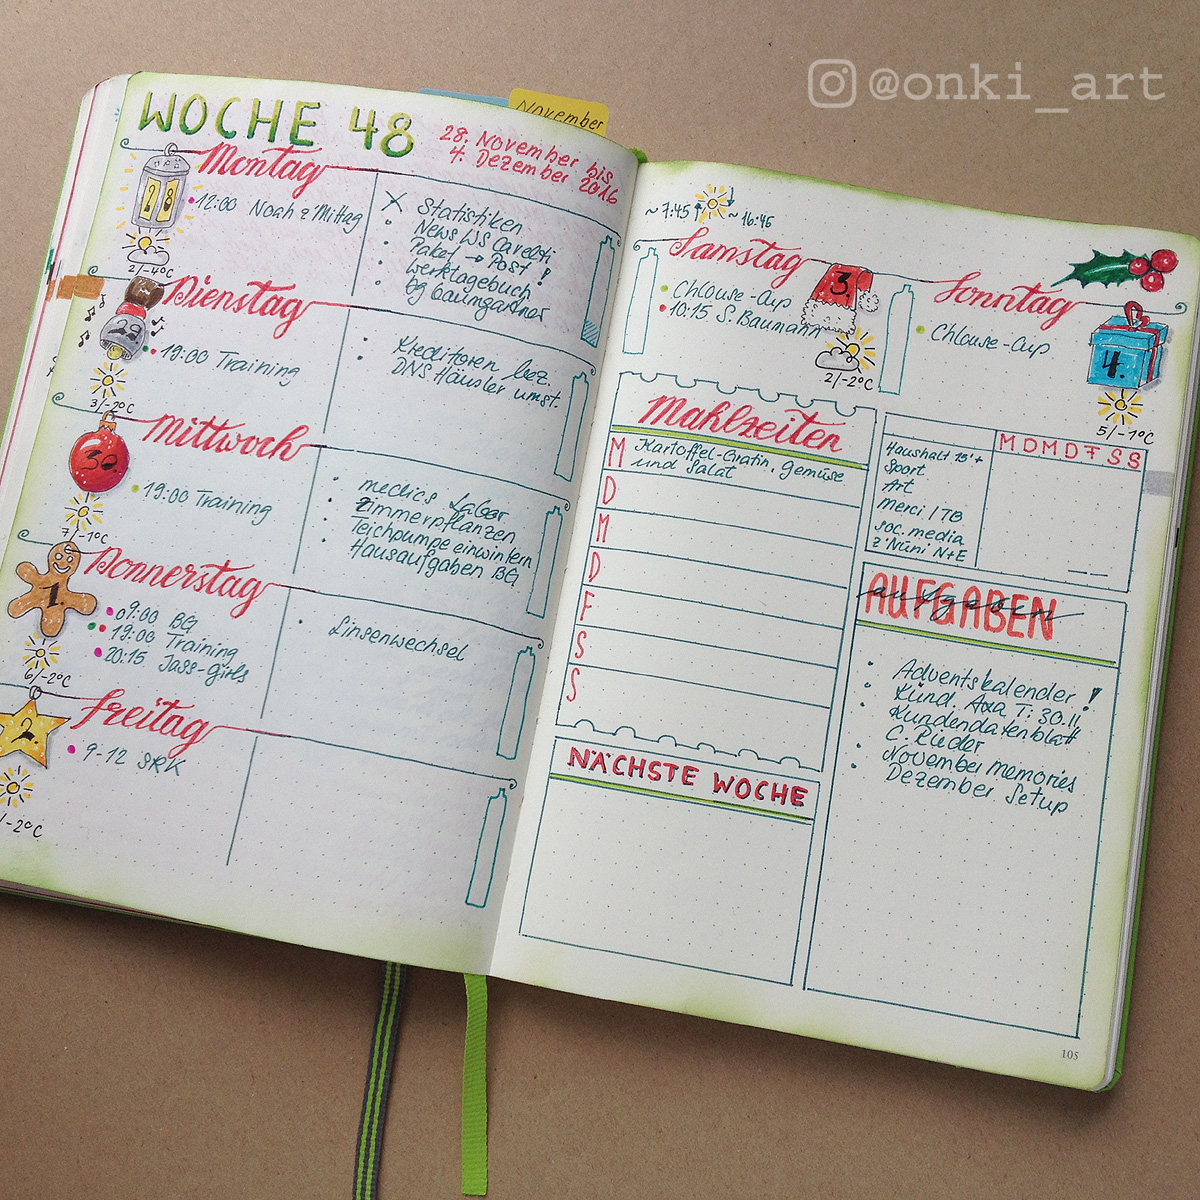 @onki_art
November
WOCHE 48
28. November bis
4. Dezember 2016
Montag
28
12:00 Noah z'Mittag
2/-4°C
Statistiken
News WS Cavelti
Paket → Post !
Werktagebuch
bg baumgartner
Dienstag
29
19:00 Training
3/-2°C
Kreditoren bez.
DNS Häusler umst.
Mittwoch
30
19:00 Training
7/-1°C
medics Labor
Zimmerpflanzen
Teichpumpe einwintern
Hausaufgaben BG
Donnerstag
1.
09:00 BG
19:00 Training
20:15 Jass-girls
6/-2°C
Linsenwechsel
Freitag
2.
9-12 SRK
/-2°C
~7:45 ~16:45
Samstag
3.
Chlouse-Cup
10:15 S. Baumann
2/-2°C
Sonntag
4.
Chlouse-Cup
5/-1°C
Mahlzeiten
M Kartoffel-Gratin, gemüse
und Salat
D
M
D
F
S
S
NÄCHSTE WOCHE
M D M D F S S
Haushalt 15'+
Sport
Art
Merci / TB
soc. media
z'Nüni N+E
AUFGABEN
aufgaben
Adventskalender !
Künd. Axa T: 30.11.
Kundendatenblatt
C. Ruder
November Memories
Dezember Setup
105